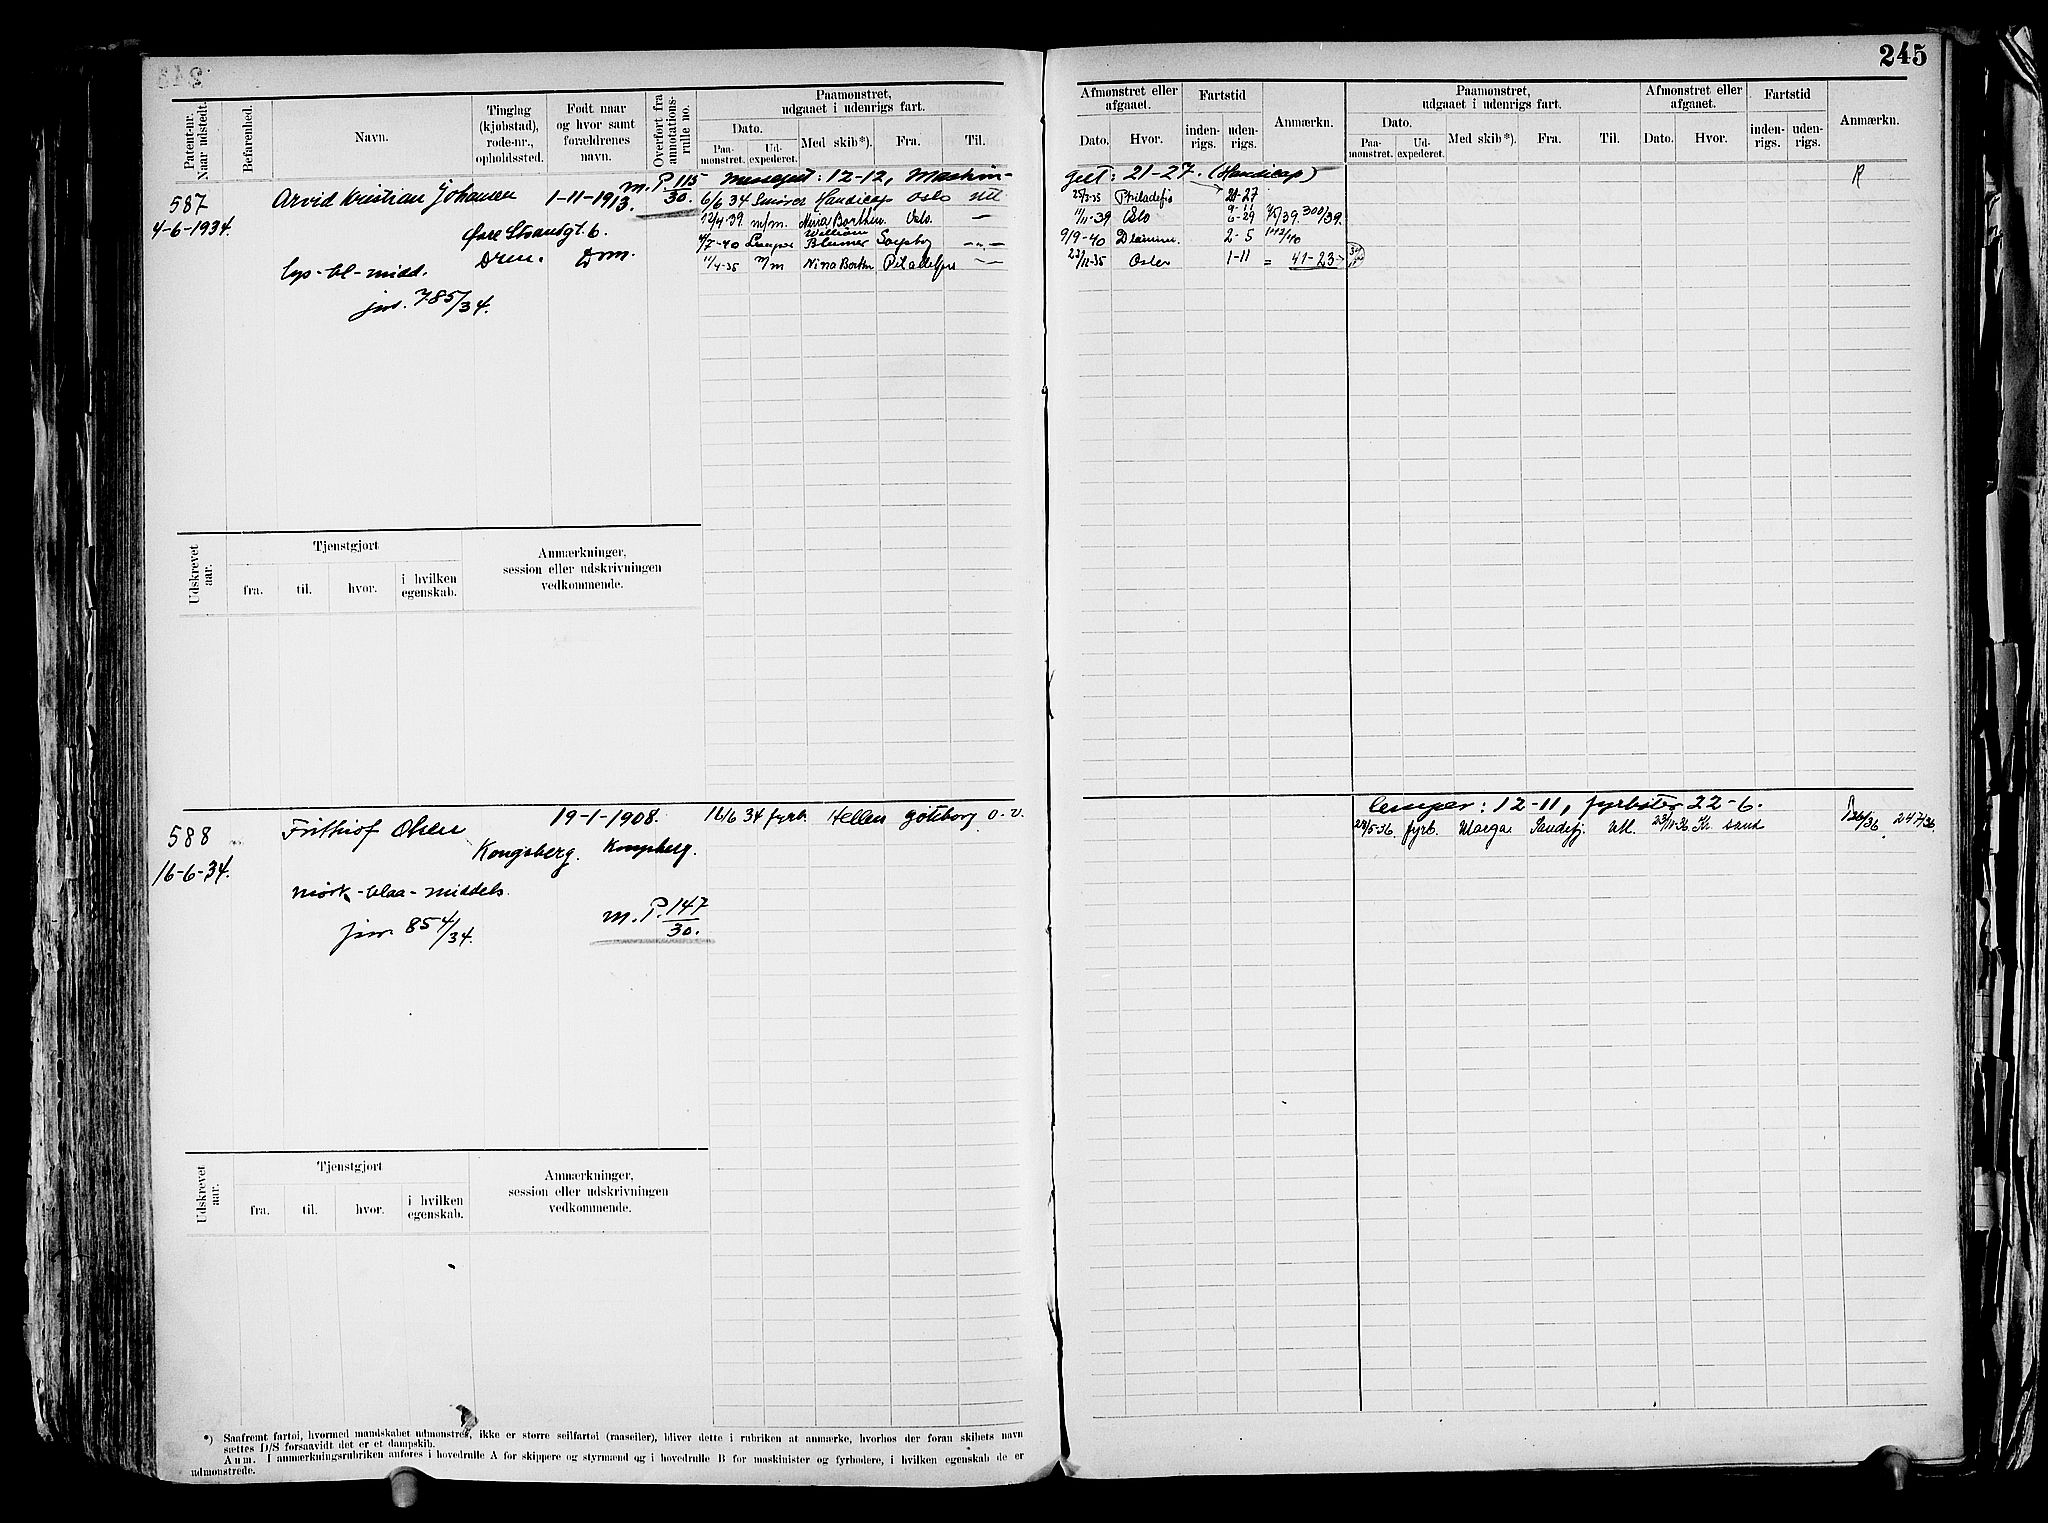 245
Patent-nr.
Naar udstedt.
Befarenhed.
Navn.
Tinglag
(kjøbstad),
rode-nr.,
opholdssted.
Født naar
og hvor samt
forældrenes
navn.
Overført fra
annotations-
rulle no.
Paamønstret,
udgaaet i udenrigs fart.
Dato.
Paa-
mønstret.
Ud-
expederet.
Med skib*).
Fra.
Til.
587
4-6-1934.
Arvid Kristian Johansen
1-11-1913.
m. P. 115
30.
Øvre Strandgt. 6.
Drm. Drm.
lys-bl-midd.
jnr. 785/34.
Messegut: 12-12, Maskin-
6/6 34 Smører Handicap Oslo utl
12/4-39. m/m. Nina Borthen Oslo. —
William
4/7-40 Lemper Blumer Sarpsbg —"—
11/4-35 m/m Nina Borthen —
Udskrevet
aar.
Tjenstgjort
fra.
til.
hvor.
i hvilken
egenskab.
Anmærkninger,
session eller udskrivningen
vedkommende.
588
16-6-34.
Frithiof Olsen
19-1-1908.
Kongsberg. Kongsberg.
mørk-blaa-middels.
jnr. 854/34.
m. P. 147
30.
16/6 34 fyrb. Hellen Gøteborg o.v.
Udskrevet
aar.
Tjenstgjort
fra.
til.
hvor.
i hvilken
egenskab.
Anmærkninger,
session eller udskrivningen
vedkommende.
*) Saafremt fartøi, hvormed mandskabet udmønstres, ikke er større seilfartøi (raaseiler), bliver dette i rubriken at anmerke, hvorhos der foran skibets navn
sættes D/S forsaavidt det er et dampskib.
Anm. I anmærkningsrubriken anføres i hovedrulle A for skippere og styrmænd og i hovedrulle B for maskinister og fyrbødere, i hvilken egenskab de er
udmønstrede.
Afmønstret eller
afgaaet.
Dato.
Hvor.
Fartstid
inden-
rigs.
uden-
rigs.
Anmærkn.
Paamønstret,
udgaaet i udenrigs fart.
Dato.
Paa-
mønstret.
Ud-
expederet.
Med skib*).
Fra.
Til.
Afmønstret eller
afgaaet.
Dato.
Hvor.
Fartstid
inden-
rigs.
uden-
rigs.
Anmærkn.
gut: 21-27. (Handicap)
R
Philadefia 21-27
9-11
11/11-39 Oslo 6-29 300/39.
9/9-40 Drammn. 2-5
23/11-35 Oslo 1-11 = 41-23
lemper: 12-11, fyrbøter 22-6.
24/5-36 fyrb. Marga. Sandefj. Utl. 23/11-36 Kr. sand
247/36.